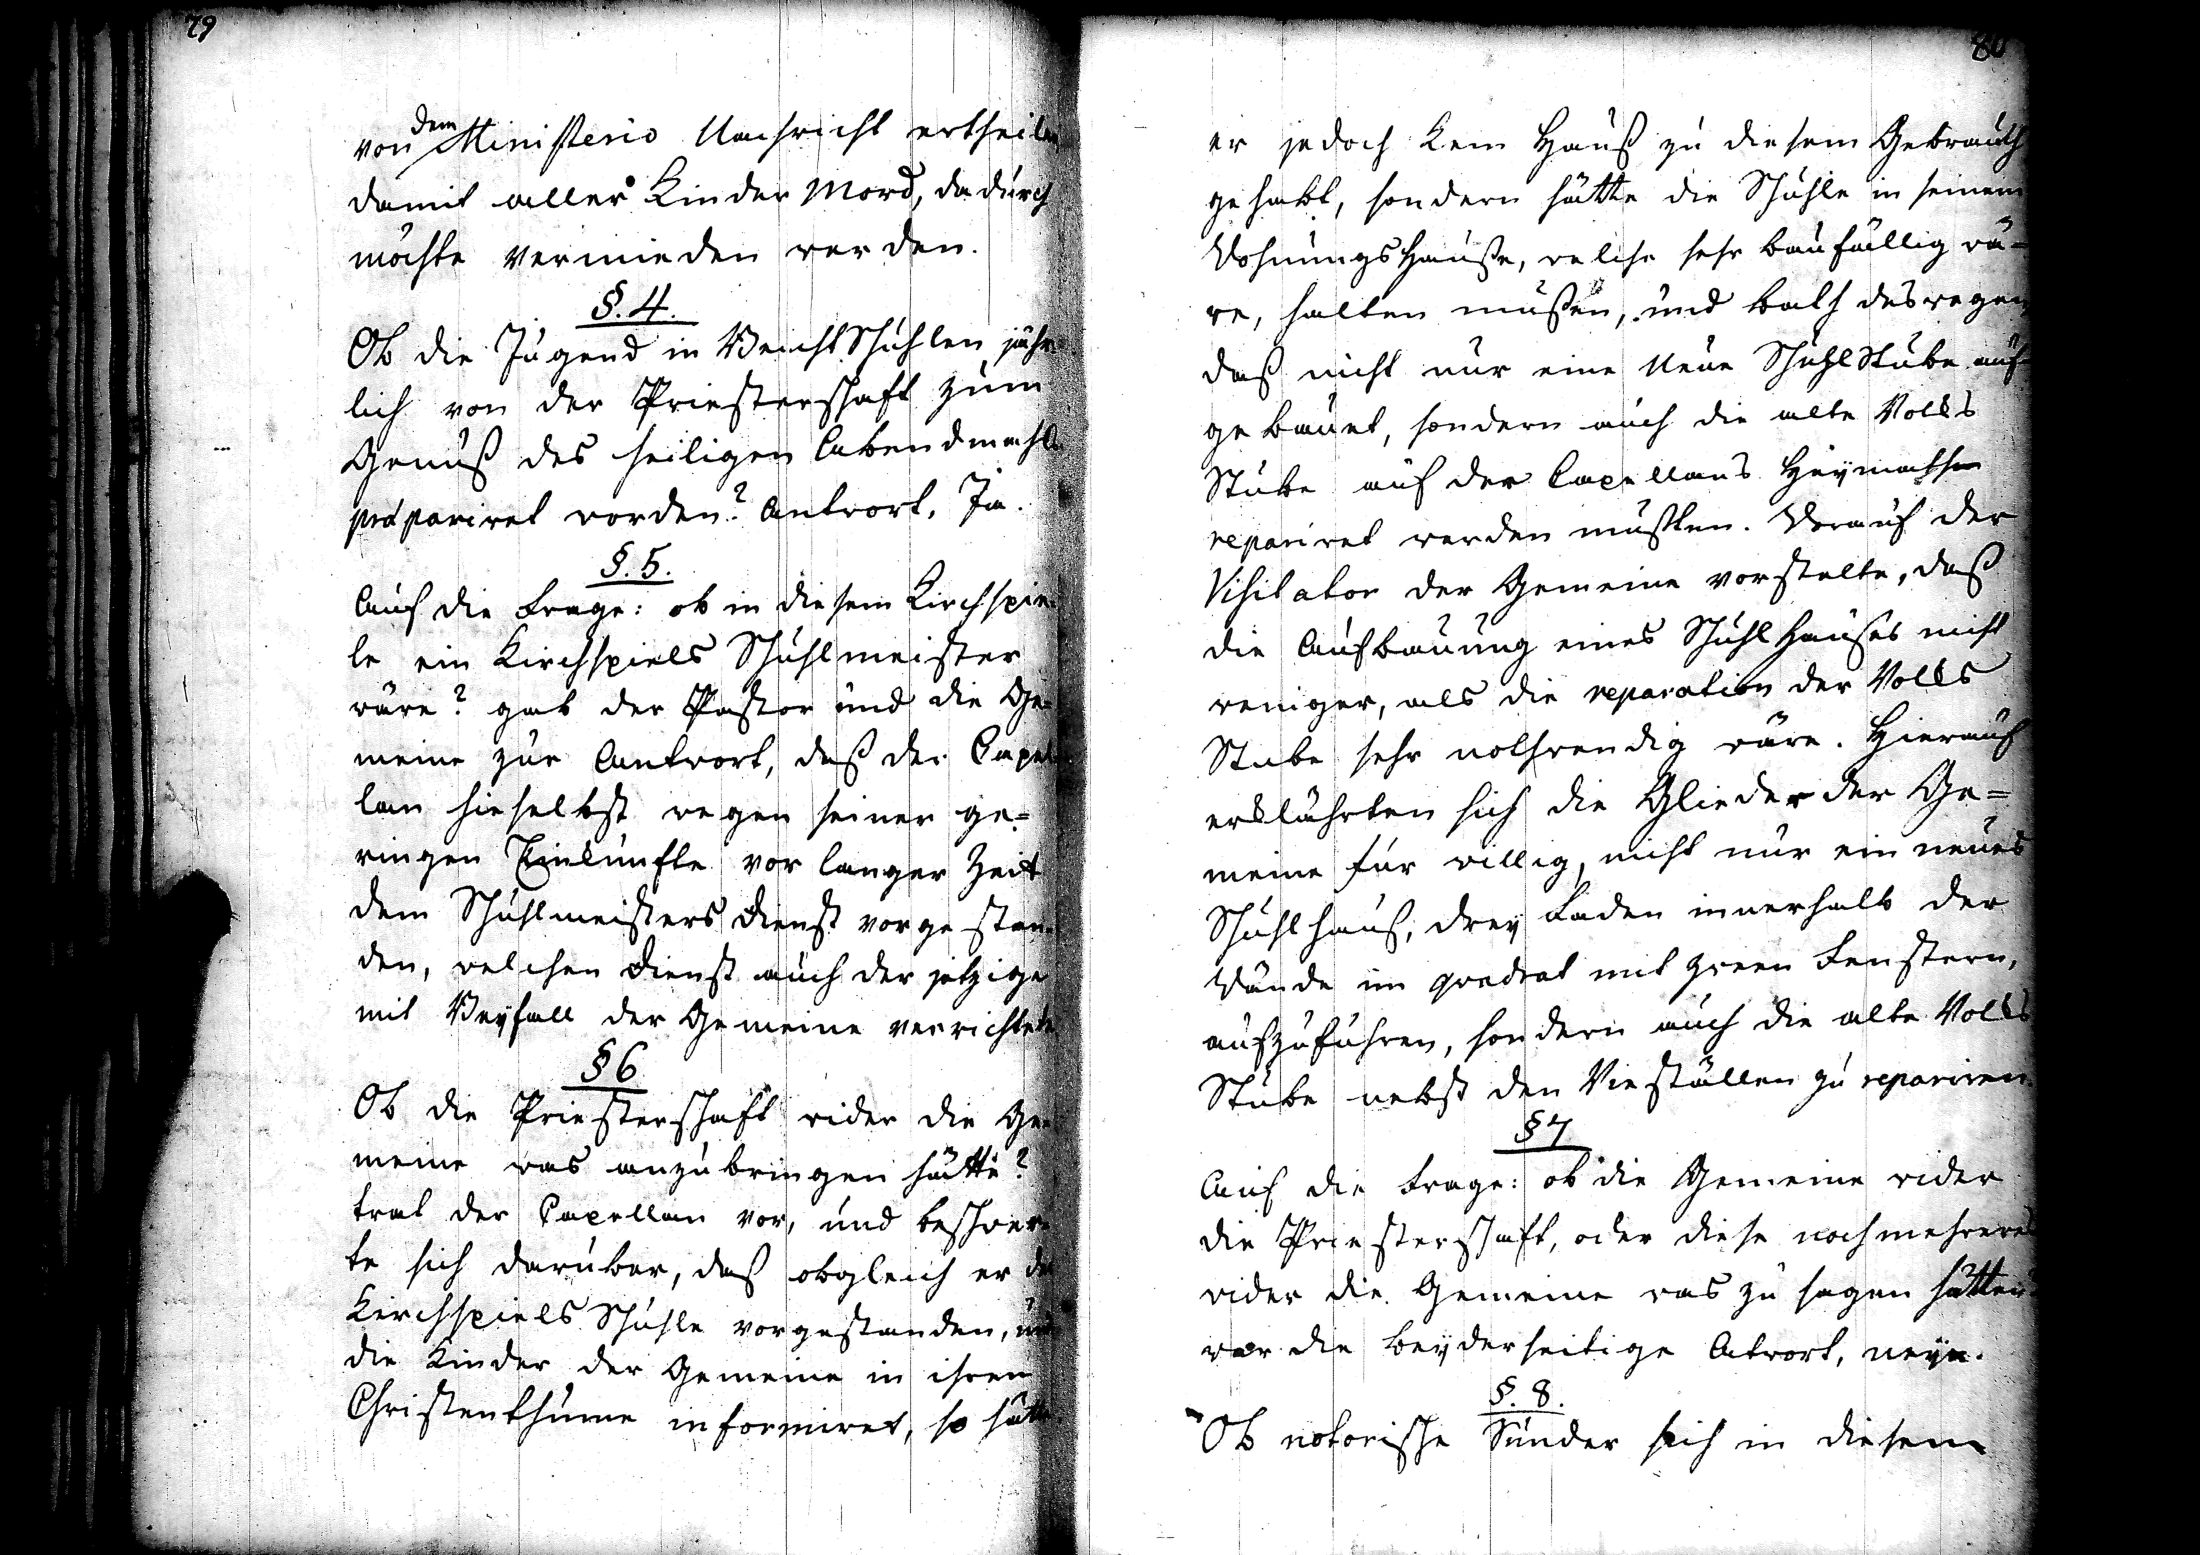 79
von dem Ministerio Nachricht ertheilen
damit aller Kinder Mord, dadurch
möchte vermieden werden.
§. 4.
Ob die Jugend in Beicht Schuhlen jähr
lich von der Priesterschaft zum
Genuß des heiligen Abendmahls
præpariret worden? Antwort. Ja.
§. 5.
Auf die Frage: ob in diesem Kirchspie-
le ein Kirchspiels Schuhlmeister
wäre? gab der Pastor und die Ge-
meine zur Antwort, daß der Capel
lan hieselbst wegen seiner ge-
ringen Einkünfte vor langer Zeit
dem Schuhlmeisters dienst vorgestan-
den, welchen dienst auch der jetzige
mit Beyfall der Gemeine verrichtete
§ 6
Ob die Priesterschaft wider die Ge-
meine was anzubringen hätte?
trat der Capellan vor, und beschwer-
te sich darüber, daß obgleich er der
Kirchspiels Schuhle vorgestanden, und
die Kinder der Gemeine in ihren
Christenthume informiret, so hätte
80
er jedoch kein Hauß zu diesem Gebrauch
gehabt, sondern hätte die Schuhle in seinem
Wohnungs Hauße, welche sehr baufällig wä-
re, halten müßen, und bath deswegen,
daß nicht nur eine Neue Schuhl Stube auf
gebauet, sondern auch die alte Volks
Stube auf der Capellans Heymathen
repariret werden müßten. Worauf der
Visitator der Gemeine vorstelte, daß
die Aufbauung eines Schuhl Hauses nicht
weniger, als die reparation der Volks
Stube sehr nothwendig wäre. Hierauf
erklährten sich die Glieder der Ge-
meine für willig, nicht nur ein neues
Schuhlhauß, drey Faden innerhalb der
Wände im qvadrat mit zween Fenstern,
aufzuführen, sondern auch die alte Volks
Stube nebst den Vieställen zu repariren.
§ 7
Auf die Frage: ob die Gemeine wider
die Priesterschaft, oder diese noch mehreres
wider die Gemeine was zu sagen hätten?
war die beyderseitige Atwort, neyn.
§. 8.
Ob notorische Sünder sich in diesem